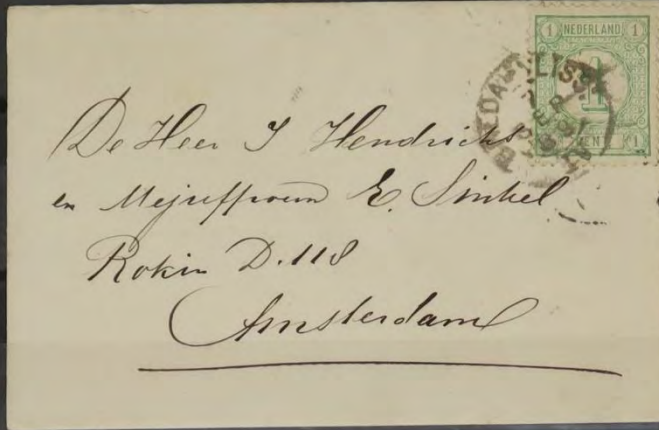 1 NEDERLAND 1
1
CENT 1
De Heer I Hendrichs
en Mejuffrouw E. Sinkel
Rokin D.118
Amsterdam